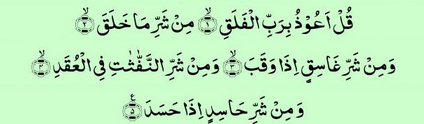 قُلْ اَعُوْذُ بِرَبِّ الْفَلَقِۙ ﴿۱﴾ مِنْ شَرِّ مَا خَلَقَۙ ﴿۲﴾
وَمِنْ شَرِّ غَاسِقٍ اِذَا وَقَبَۙ ﴿۳﴾ وَمِنْ شَرِّ النَّفّٰثٰتِ فِي الْعُقَدِۙ ﴿۴﴾
وَمِنْ شَرِّ حَاسِدٍ اِذَا حَسَدَ ﴿۵﴾